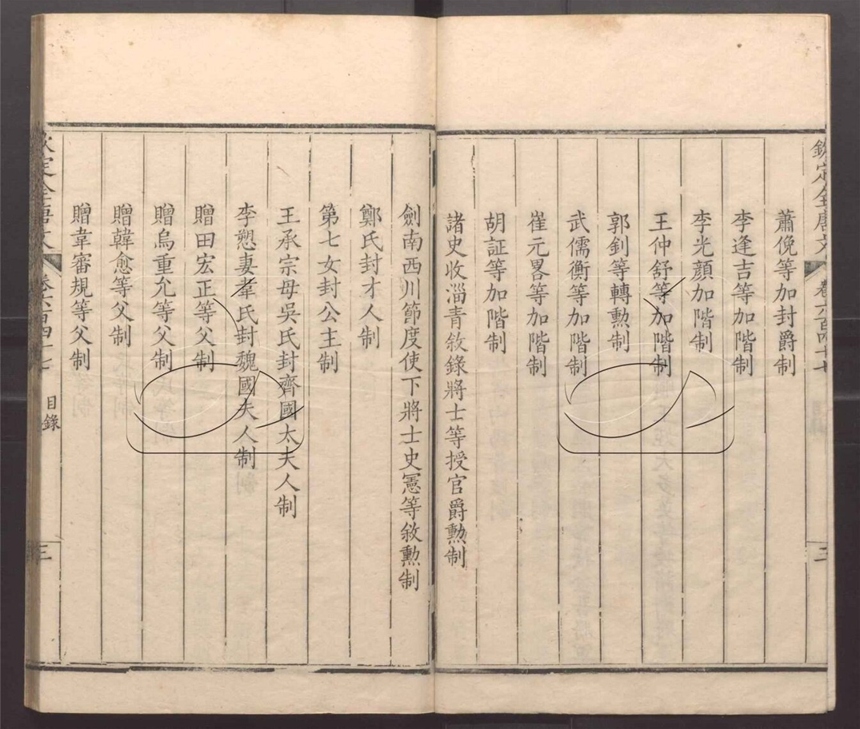 欽定全唐文 卷六百四十七 三
蕭俛等加封爵制
李逢吉等加階制
李光顏加階制
王仲舒等加階制
郭釗等轉勲制
武儒衡等加階制
崔元畧等加階制
胡証等加階制
諸史收淄青敘錄將士等授官爵勲制
劍南西川節度使下將士史憲等敘勲制
鄭氏封才人制
第七女封公主制
王承宗母吳氏封齊國太夫人制
李愬妻韋氏封魏國夫人制
贈田宏正等父制
贈烏重允等父制
贈韓愈等父制
贈韋審規等父制
欽定全唐文 卷六百四十七 目錄 三